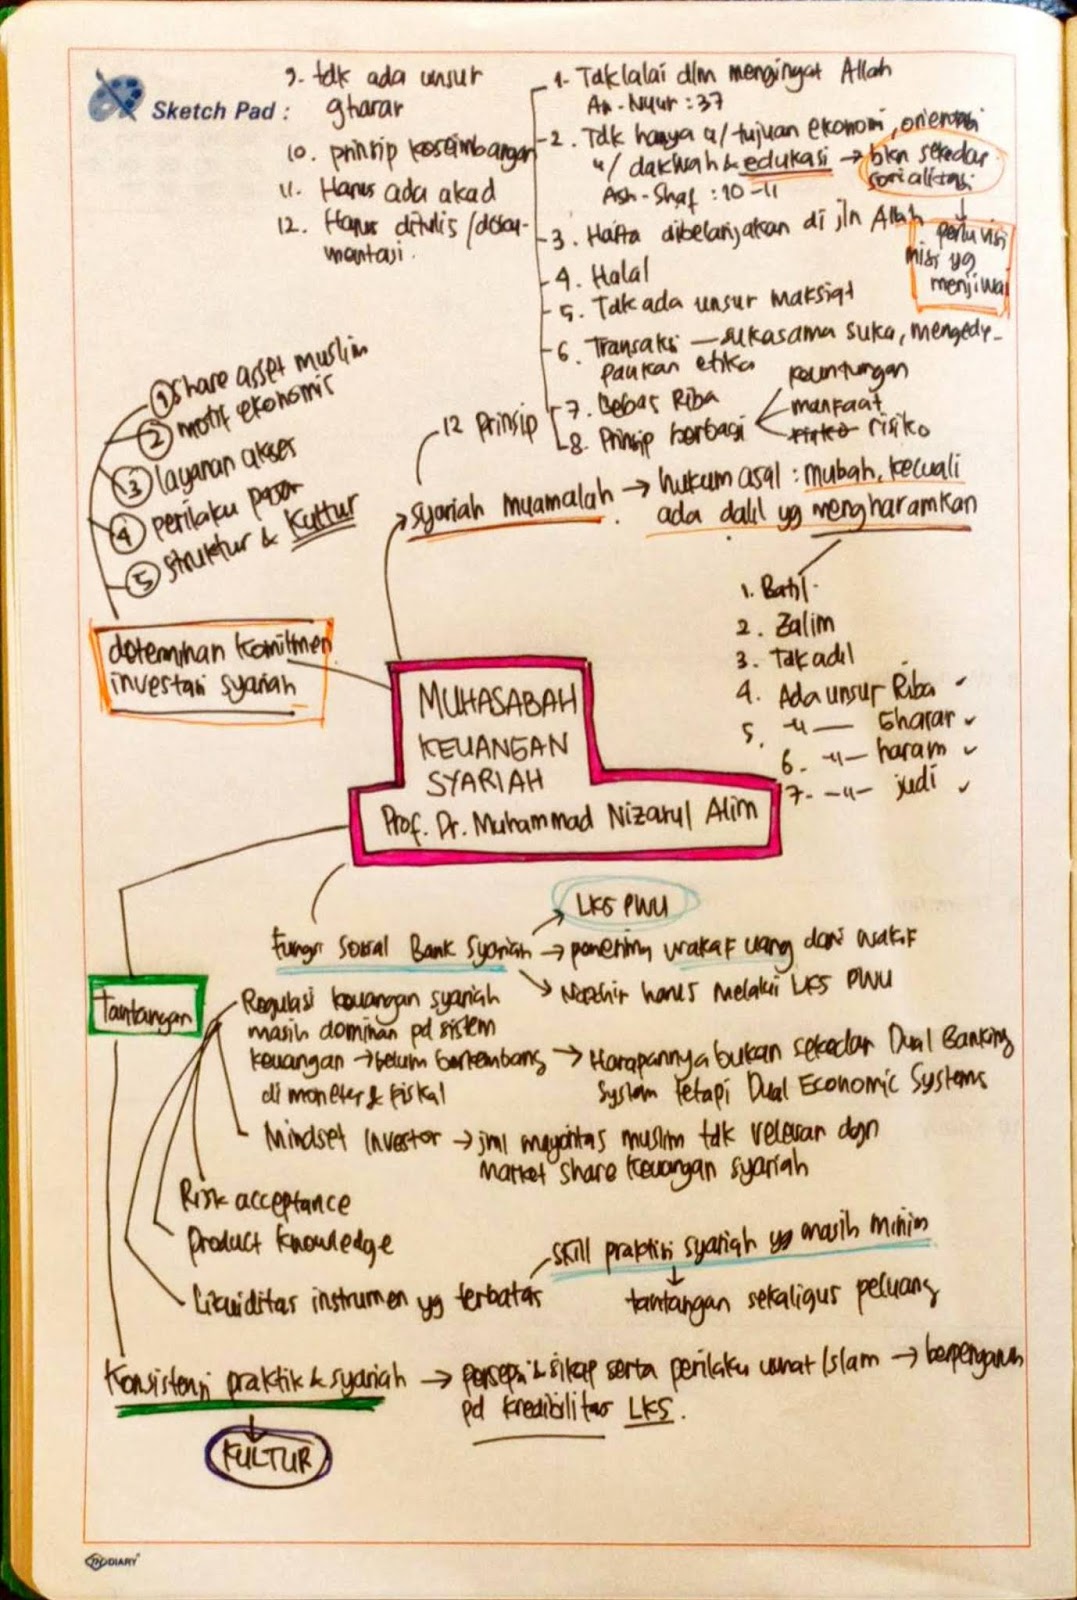 Sketch Pad :
9. tdk ada unsur
gharar
10. prinsip keseimbangan
11. Harus ada akad
12. Harus ditulis /doku-
mentasi.
1. Tdk lalai dlm mengingat Allah
An-Nuur : 37
2. Tdk hanya u/ tujuan ekonomi, orientasi
u/ dakwah & edukasi → bkn sekedar
sosialisasi
Ash-Shaf : 10-11
3. Harta dibelanjakan di jln Allah
perlu visi
misi yg
menjiwai
4. Halal
5. Tdk ada unsur maksiat
6. Transaksi — suka sama suka, mengede-
pankan etika
7. Bebas Riba
8. Prinsip berbagi
keuntungan
manfaat
risiko risiko
12 Prinsip
syariah muamalah → hukum asal : mubah, kecuali
ada dalil yg mengharamkan
1. Batil
2. Zalim
3. Tdk adil
4. Ada unsur Riba ✓
5. -"- Gharar ✓
6. -"- haram ✓
7. -"- judi ✓
① share asset muslim
② motif ekonomis
③ layanan akses
④ perilaku pasar
⑤ struktur & Kultur
determinan komitmen
investasi syariah
MUHASABAH
KEUANGAN
SYARIAH
Prof. Dr. Muhammad Nizarul Alim
LKS PWU
Fungsi Sosial Bank Syariah → penerima wakaf uang dari wakif
→ Nazhir harus melalui LKS PWU
tantangan
Regulasi keuangan syariah
masih dominan pd sistem
keuangan → belum berkembang → Harapannya bukan sekedar Dual Banking
di moneter & fiskal
System tetapi Dual Economic Systems
Mindset Investor → jml mayoritas muslim tdk relevan dgn
market share keuangan syariah
Risk acceptance
Product knowledge
Likuiditas instrumen yg terbatas
skill praktisi syariah yg masih minim
tantangan sekaligus peluang
Konsistensi praktik & syariah → persepsi & sikap serta perilaku umat Islam → berpengaruh
pd kredibilitas LKS.
KULTUR
DIARY